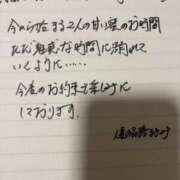 今から始まる2人の甘い蜜のお時間
ただ魅惑な時間に溺れて
いくように……
今度のお約束を楽しみに
しております。